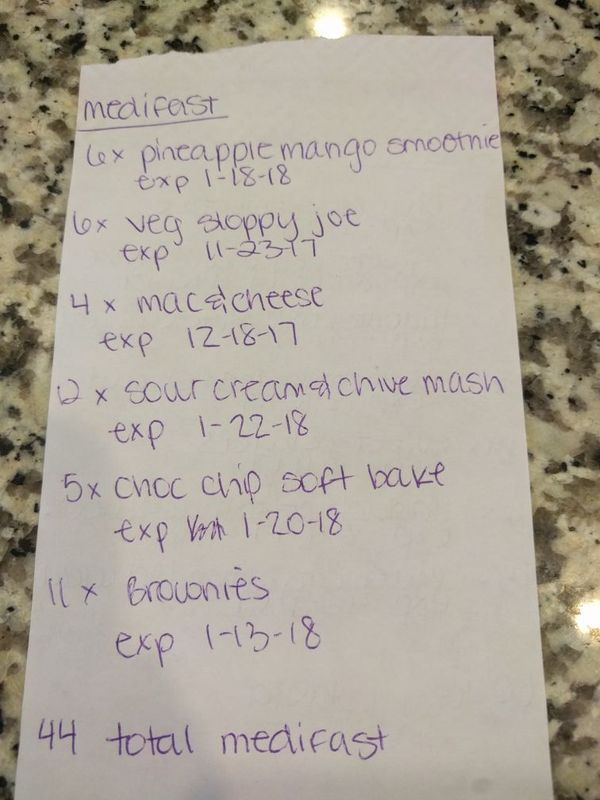 medifast
6x pineapple mango smoothie
exp 1-18-18
6x veg sloppy joe
exp 11-23-17
4 x mac & cheese
exp 12-18-17
12 x sour cream & chive mash
exp 1-22-18
5x choc chip soft bake
exp 1-20-18
11 x Brownies
exp 1-13-18
44 total medifast